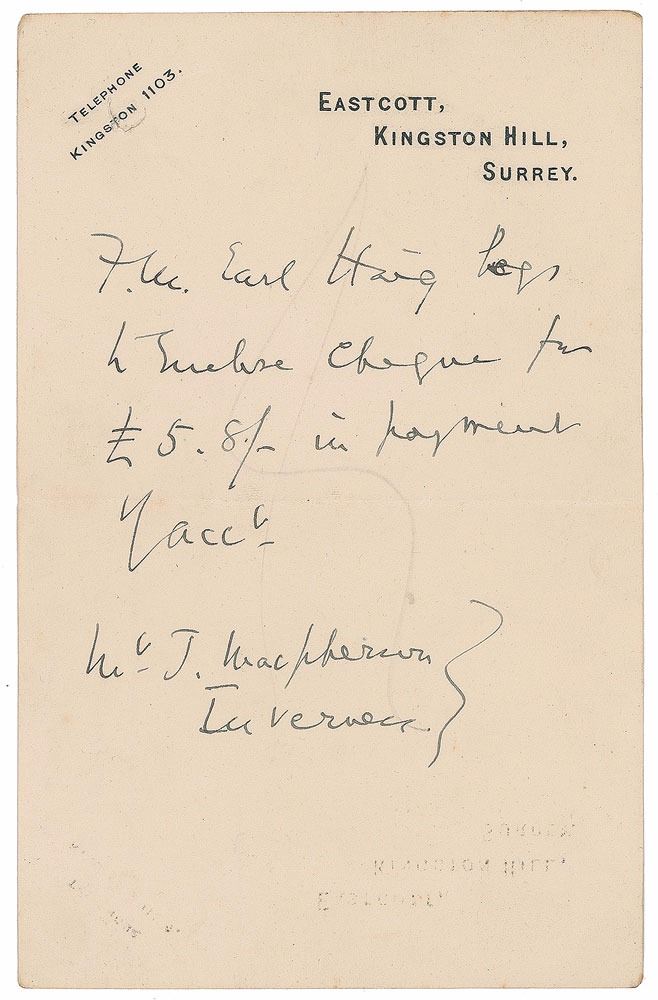 TELEPHONE
KINGSTON 1103.
EASTCOTT,
KINGSTON HILL,
SURREY.
F.M. Earl Haig begs
to Enclose Cheque for
£5.8/- in payment
of acct
Mr J. Macpherson
Inverness